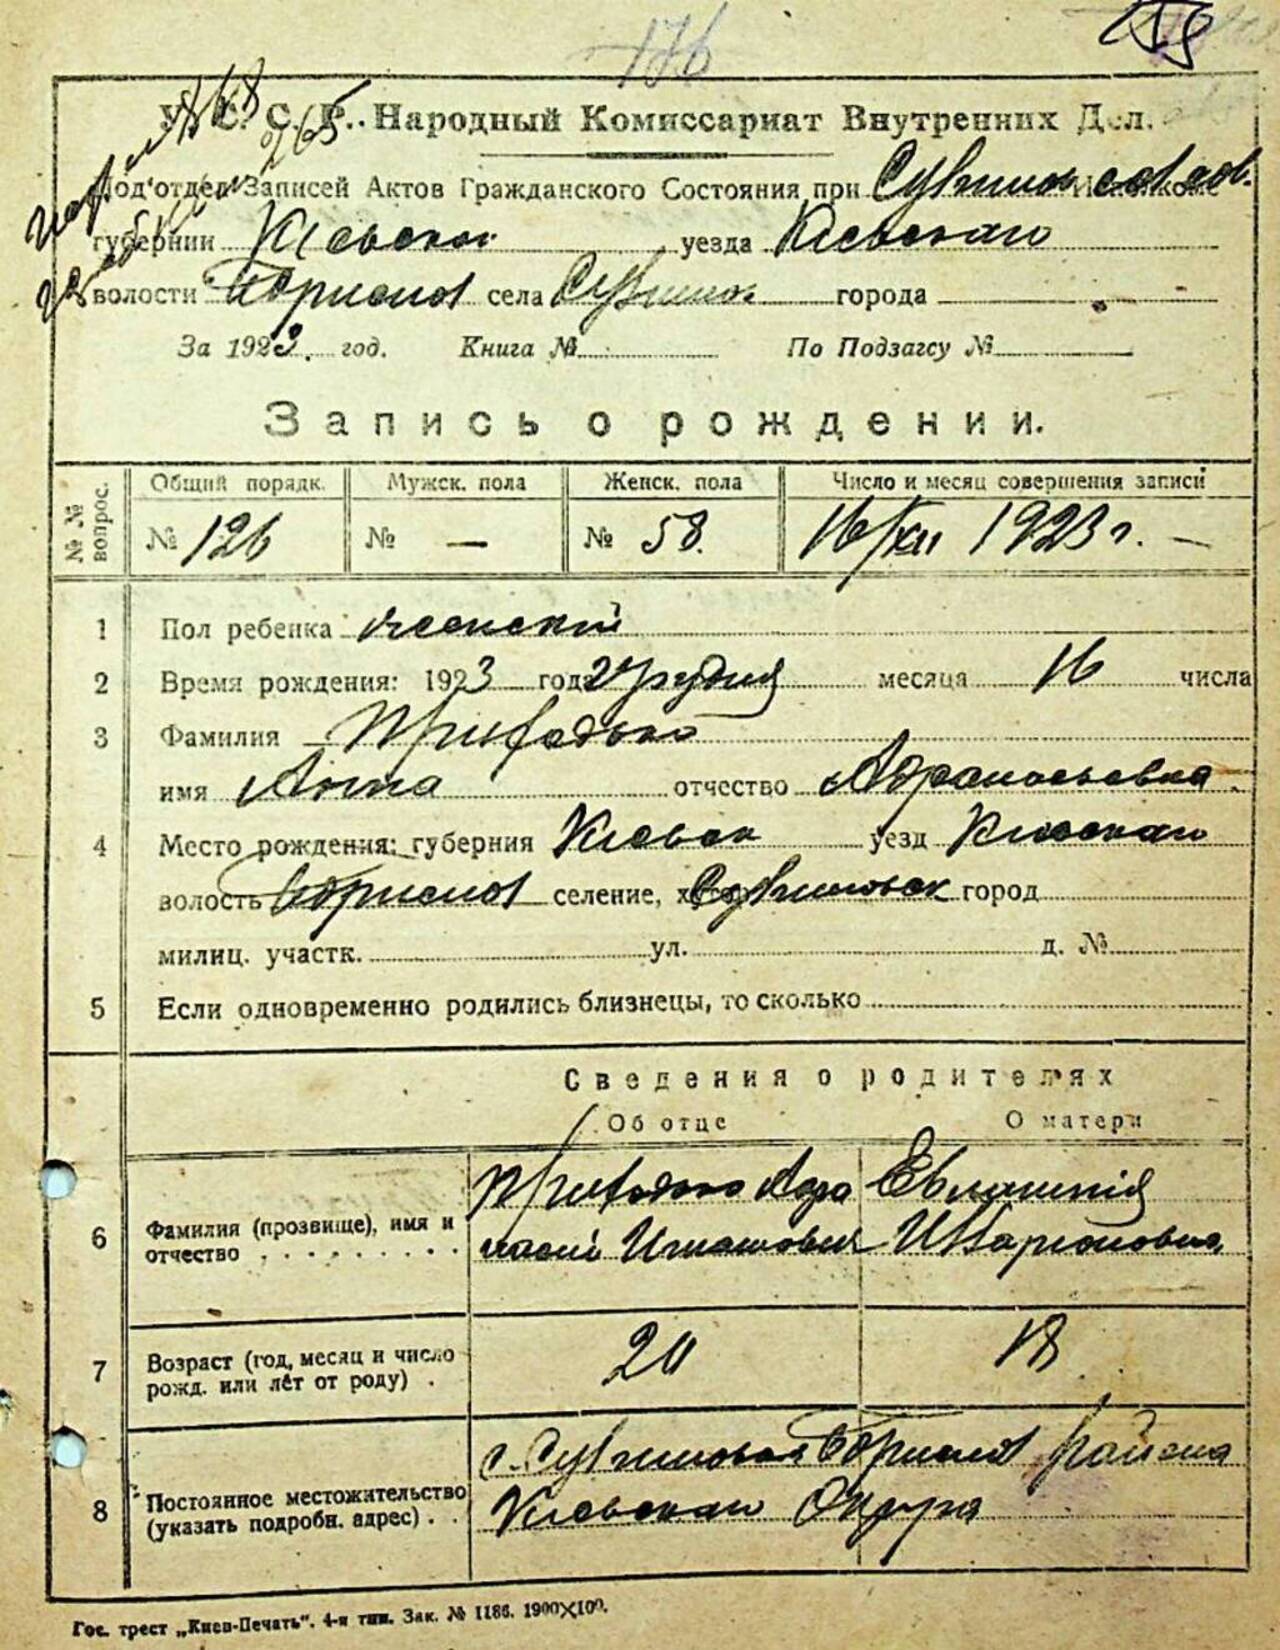 176
У. С. С. Р. Народный Комиссариат Внутренних Дел.
Под'отдел Записей Актов Гражданского Состояния при
губернии Киевской уезда Киевскаго
волости села города
За 1923. год. Книга № По Подзагсу №
Запись о рождении.
№ № вопрос. Общий порядк. Мужск. пола Женск. пола Число и месяц совершения записи
№ 126 № — № 58. 16/XII 1923 г. —
1 Пол ребенка женский
2 Время рождения: 1923 года Грудня месяца 16 числа
3 Фамилия Приходько
имя Анна отчество Афанасьевна
4 Место рождения: губерния Киевск уезд Киевскаго
волость селение, город
милиц. участк. ул. д. №
5 Если одновременно родились близнецы, то сколько
Сведения о родителях
Об отце О матери
6 Фамилия (прозвище), имя и отчество Приходько Афа Евлампія
насій Игнатович Иларионовна
7 Возраст (год, месяц и число рожд. или лет от роду) . 20 18
8 Постоянное местожительство (указать подробн. адрес) . . района
Киевскаго Округа
Гос. трест „Киев-Печать“. 4-я тип. Зак. № 1186. 1900×100.